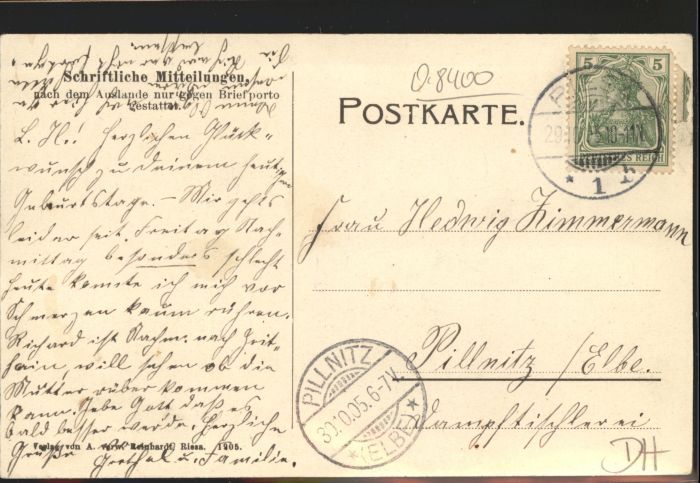 Schriftliche Mitteilungen,
nach dem Auslande nur gegen Briefporto
gestattet.
L. H.! Herzlichen Glück-
wunsch zu deinem heutigen
Geburtstage. – Mir gehts
leider seit Freitag Nach-
mittag besonders schlecht
heute konnte ich mich vor
Schmerzen kaum rühren.
Richard ist Nachm. nach Zeit-
hain, will sehen ob die
Mutter rüber kommen
kann. Gebe Gott daß es
bald besser werde. Herzliche
Grüße
Grethel u. Familie.
Verlag von A. verw. Reinhardt, Riesa. 1905.
0.8400
POSTKARTE.
5 5
DEUTSCHES REICH
10-11V
* 1 b
Frau Hedwig Zimmermann
Pillnitz /Elbe.
Dampftischlerei
PILLNITZ
30.10.05. 6-7V.
*(ELBE)*
DH